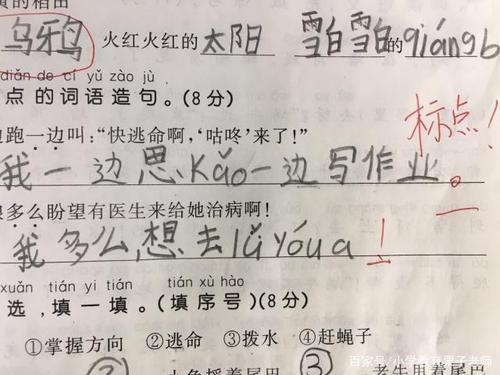 乌牙鸟 火红火红的太阳 雪白雪白的qiáng b
diǎn de cí yǔ zào jù
点的词语造句。(8分)
边跑一边叫:“快逃命啊,‘咕咚’来了!”
标点!
我一边思kǎo一边写作业。
多么盼望有医生来给她治病啊!
我多么想去lǚ yóu a!
xuǎn tián yi tián tián xù hào
选,填一填。(填序号)(8分)
①掌握方向 ②逃命 ③拨水 ④赶蝇子
② ③
百家号/小学教育栗子老师